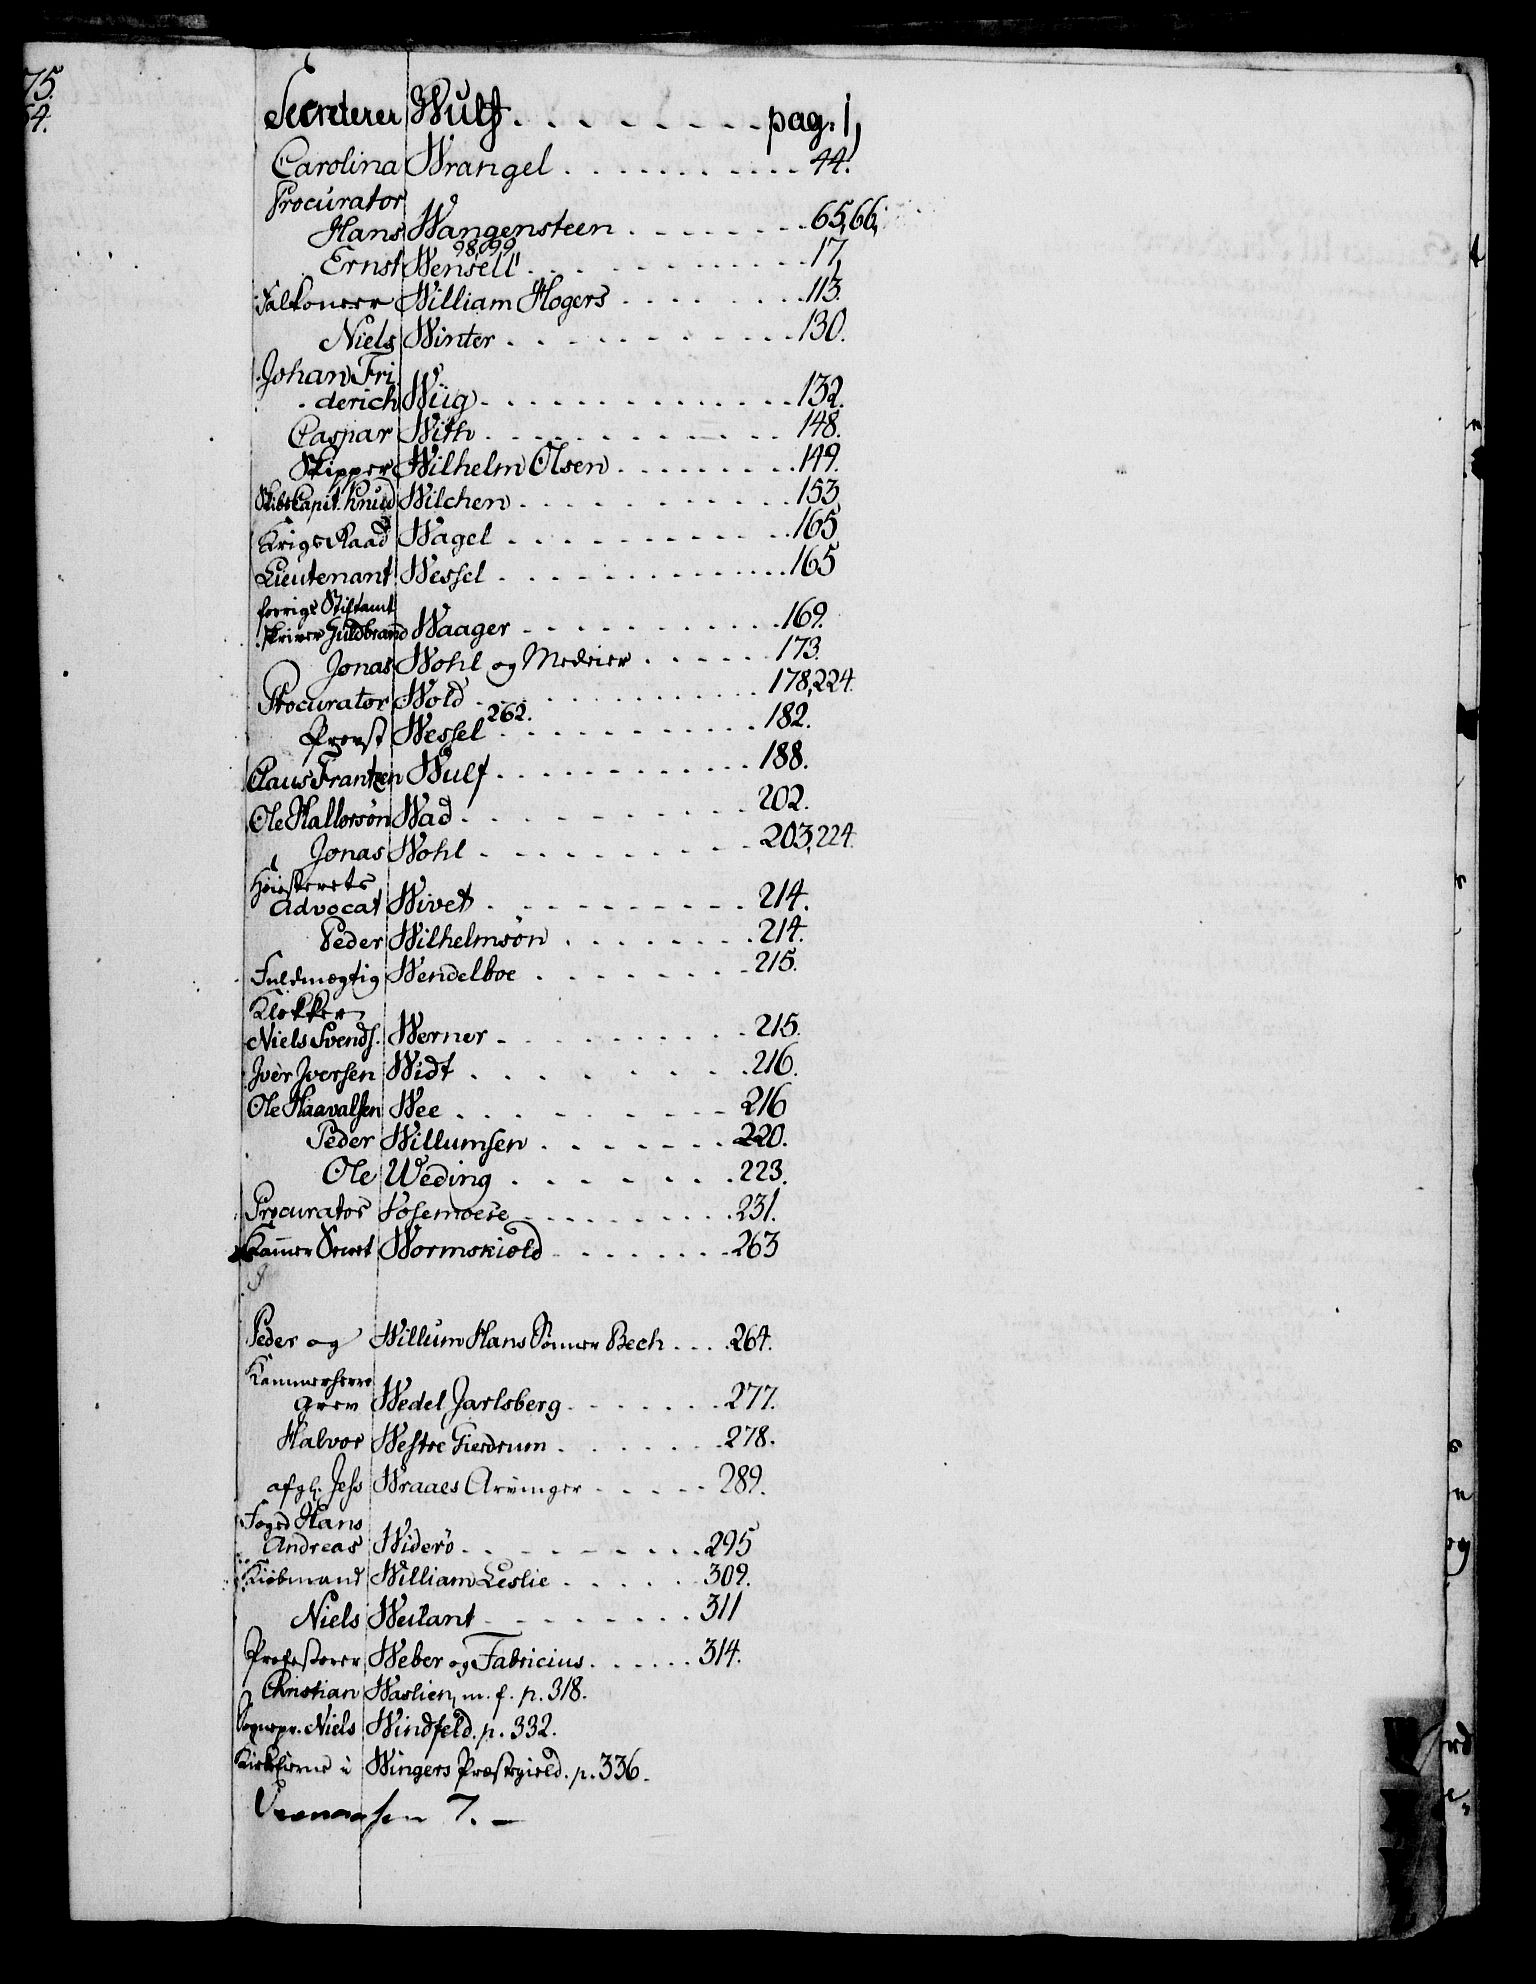 75.
54.
Secreterer Wulf . . . . . . . . . pag. 1,
Carolina Wrangel . . . . . . . . . . . 44.
Procurator
Hans Wangensteen . . . . . . . . 65, 66,
98, 99
Ernst Wensell . . . . . . . . . . . . 17,
Falkoneer William Hogers . . . . . . . . 113.
Niels Winter . . . . . . . . . . . 130.
Johan Fri
derich Wiig . . . . . . . . . . . . . 132.
Caspar With . . . . . . . . . . . . 148.
Skipper Wilhelm Olsen . . . . . . . . 149.
Skibs Capit. Knud Wilchen . . . . . . . . . . 153
Krigs Raad Wagel . . . . . . . . . . . . 165
Lieutenant Wessel . . . . . . . . . . . . 165
forrige Stiftamt
skriver Guldbrand Waager . . . . . . . . . . . 169.
Jonas Wohl og Medeier . . . . . . 173.
Procurator Wold . . . . . . . . . . . . 178, 224.
262.
Provst Wessel . . . . . . . . . . . 182.
Claus Frantzen Wulf . . . . . . . . . . . 188.
Ole Hallorsøn Wad . . . . . . . . . . . 202.
Jonas Wohl . . . . . . . . . . . 203, 224.
Høiesterets
Advocat Wivet . . . . . . . . . . 214.
Peder Wilhelmsøn . . . . . . . . 214.
Fuldmægtig Wendelboe . . . . . . . . 215.
Klokker
Niels Svends. Werner . . . . . . . . . . 215.
Iver Iversen Widt . . . . . . . . . 216.
Ole Haavalsen Wee . . . . . . . . . . 216
Peder Willumsen . . . . . . . . 220.
Ole Weding . . . . . . . . 223.
Procurator Vosemoese . . . . . . . . 231.
Kammer Secret Wormskiold . . . . . . . . 263
Peder og Willum Hans Sønner Bech . . . . 264.
Kammerherre
Grev Wedel Jarlsberg . . . . . . . 277.
Halvor Westre Gierdrum . . . . . . . 278.
afg. Jess Wraaes Arvinger . . . . . 289.
Foged Hans
Andreas Widerø . . . . . . . . . 295
Kiøbmand William Leslie . . . . . . 309.
Niels Weilant . . . . . . . . . 311
Professorer Weber og Fabricius . . . . . . 314.
Christian Waslien, m. f. p. 318.
Sognepr. Niels Windfeld. p. 332.
Kirkerne i Wingers Præstegield. p. 336.
7. –